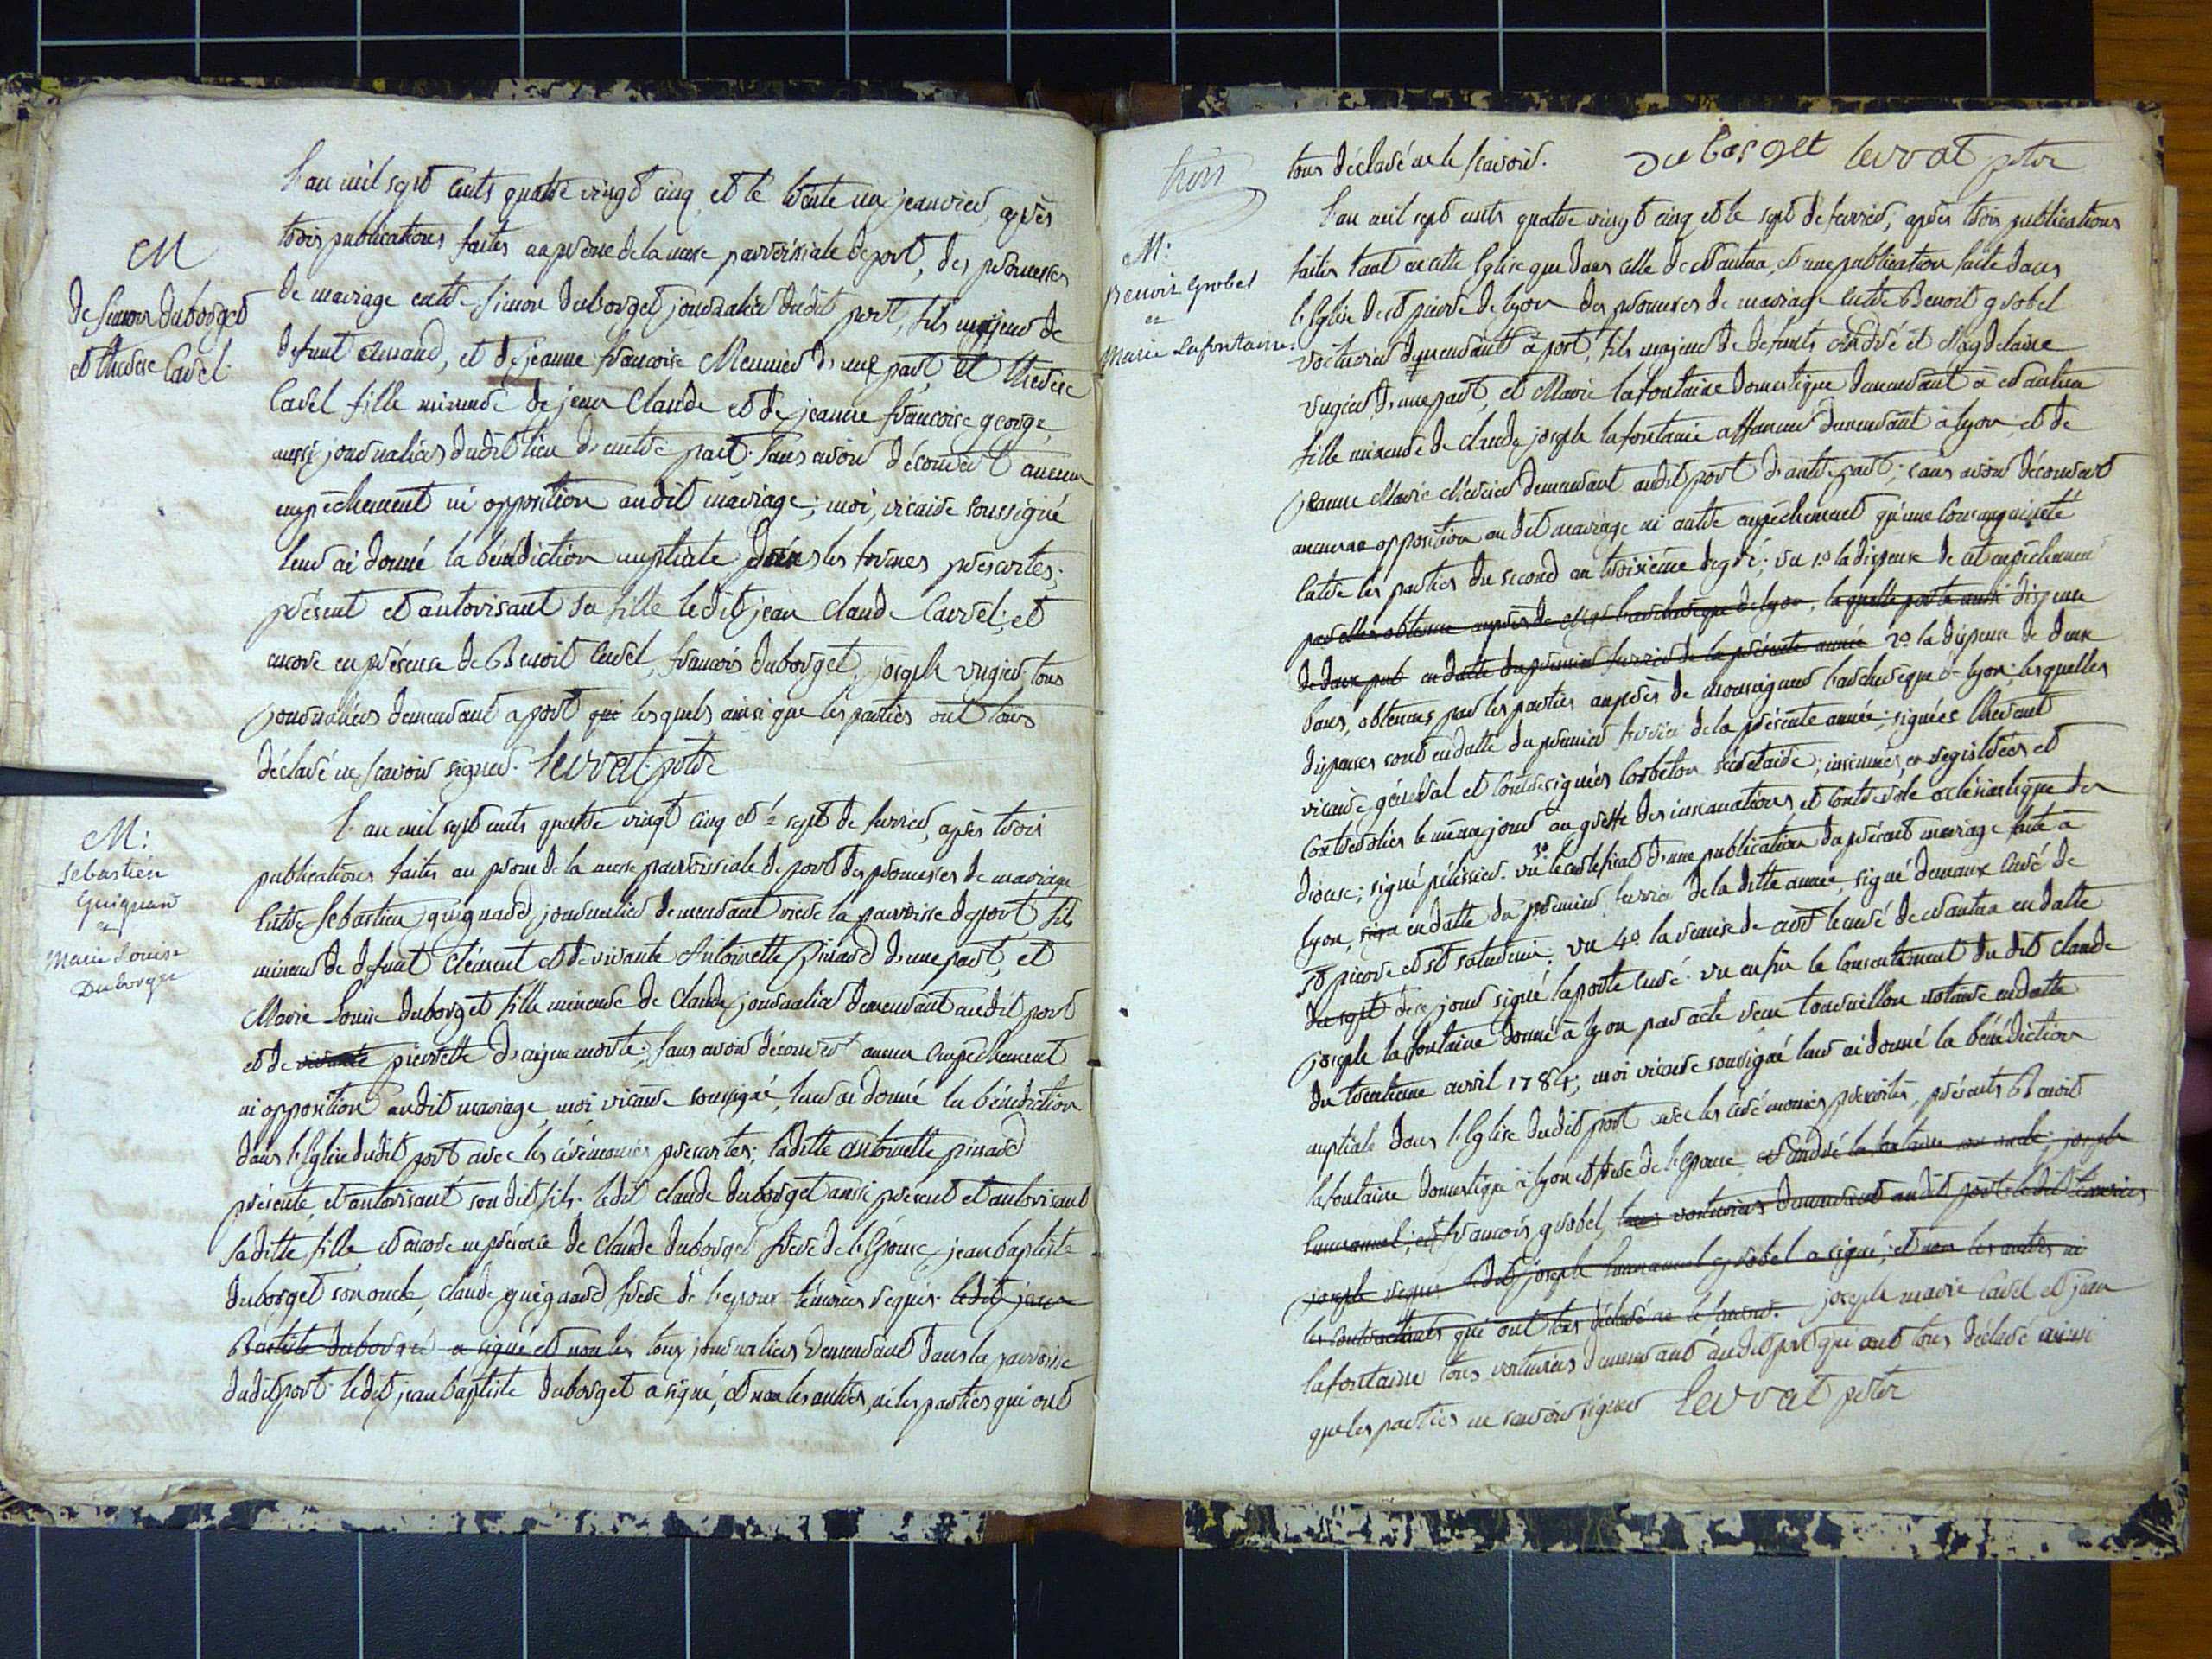 L'an mil sept cents quatre vingt cinq et le trente un janvier, après
trois publications faites au prone de la messe parroissiale de port, des promesses
de mariage entre Simon Duborget journalier dudit port, fils majeur de
defunt Amand, et de jeanne francoise Meunier d'une part et therese
Cavel fille mineure de jean Claude et de jeanne francoise george,
aussi journaliers dudit lieu d'autre part. Sans avoir découvert aucun
empêchement ni opposition audit mariage; moi, vicaire soussigné
leur ai donné la bénédiction nuptiale dans les formes prescrites;
présent et autorisant sa fille ledit jean Claude Cavel; et
encore en présence de Benoit Cavel, francois duborget, joseph vugier tous
journaliers demeurant a port qui lesquels ainsi que les parties ont tous
déclaré ne scavoir signer. Levrat ptre
M
de Simon Duborget
et therese Cavel.
L'an mil sept cents quatre vingt cinq et le sept de fevrier, après trois
publications faites au prone de la messe parroissiale de port des promesses de mariage
Entre Sebastien guignard, journalier demeurant riere la parroisse de port, fils
mineur de defunt Clément et de vivante Antoinette Pinard d'une part, et
Marie Louise duborget fille mineure de Claude journalier demeurant audit port
et de vivante pierrette D'aiguemorte; sans avoir découvert aucun Empêchement
ni opposition audit mariage, moi, vicaire soussigné, leur ai donné la bénédiction
dans l'Eglise dudit port avec les cérémonies prescrites; ladite antoinette pinard
présente, et autorisant son dit fils. ledit Claude duborget aussi présent et autorisant
saditte fille, et encore en présence de Claude duborget frere de l'Epouse, jean baptiste
duborget son oncle, Claude guignard frere de l'epoux témoins requis. ledit jean
Baptiste duborget a signé et non les tous journaliers demeurant dans la parroisse
dudit port. ledit jean baptiste duborget a signé, et non les autres, ni les parties qui ont
M:
Sebastien
Guignard
et
Marie Louise
Duborget
trois
tous déclaré ne le scavoir. duborget levrat ptre
L'an mil sept cents quatre vingt cinq et le sept de fevrier, après trois publications
faites tant en cette Eglise que dans celle de Nantua, et une publication faite dans
l'Eglise de st pierre de lyon des promesses de mariage entre Benoit grobel
voiturier demeurant à port, fils majeur de defunts André et Magdelaine
vugier d'une part, et Marie lafontaine domestique demeurant à Nantua
fille mineure de claude joseph lafontaine affaneur demeurant à lyon, et de
jeanne Marie Mercier demeurant audit port d'autre part; sans avoir découvert
aucune opposition audit mariage ni autre empêchement qu'une consanguinité
Entre les parties du second au troisième degré; vu 1º la dispense de cet empêchement
par elles obtenue auprès de Mgr l'archeveque de lyon, laquelle porte aussi dispense
de deux pub en datte du premier fevrier de la présente année 2º la dispense de deux
bans, obtenues par les parties auprès de monseigneur l'archeveque de lyon; lesquelles
dispenses sont en datte du premier fevrier de la présente année; signées thevenet
vicaire général et contresignées Corbeton secretaire; insinuées, enregistrées et
controlées le même jour au greffe des insinuations, et controle ecclésiastique du
diocese; signé pélissier. vu 3º le certificat d'une publication du présent mariage faite à
lyon, signé en datte du premier fevrier de la ditte année, signé demeaux curé de
st pierre et st saturnin. vu 4º la remise de mr le curé de Nantua en datte
du sept de ce jour signé laporte curé. vu enfin le consentement du dit claude
joseph la fontaine donné à lyon par acte reçu tournillon notaire en datte
du trentieme avril 1784; moi vicaire soussigné leur ai donné la bénédiction
nuptiale dans l'Eglise dudit port avec les cérémonies prescrites, présents Benoit
lafontaine domestique à lyon et frere de l'epouse et André lafontaine son oncle joseph
Emmanuel; et francois grobel, tous voituriers demeurant audit port ledit temoins
joseph requis ledit joseph Emmanuel grobel a signé; et non les autres ni
les contractants qui ont tous déclaré ne le scavoir. joseph marie cavel et jean
lafontaine tous voituriers demeurant audit port qui ont tous déclaré ainsi
que les parties ne scavoir signer levrat ptre
M:
Benoit Grobel
et
Marie Lafontaine.